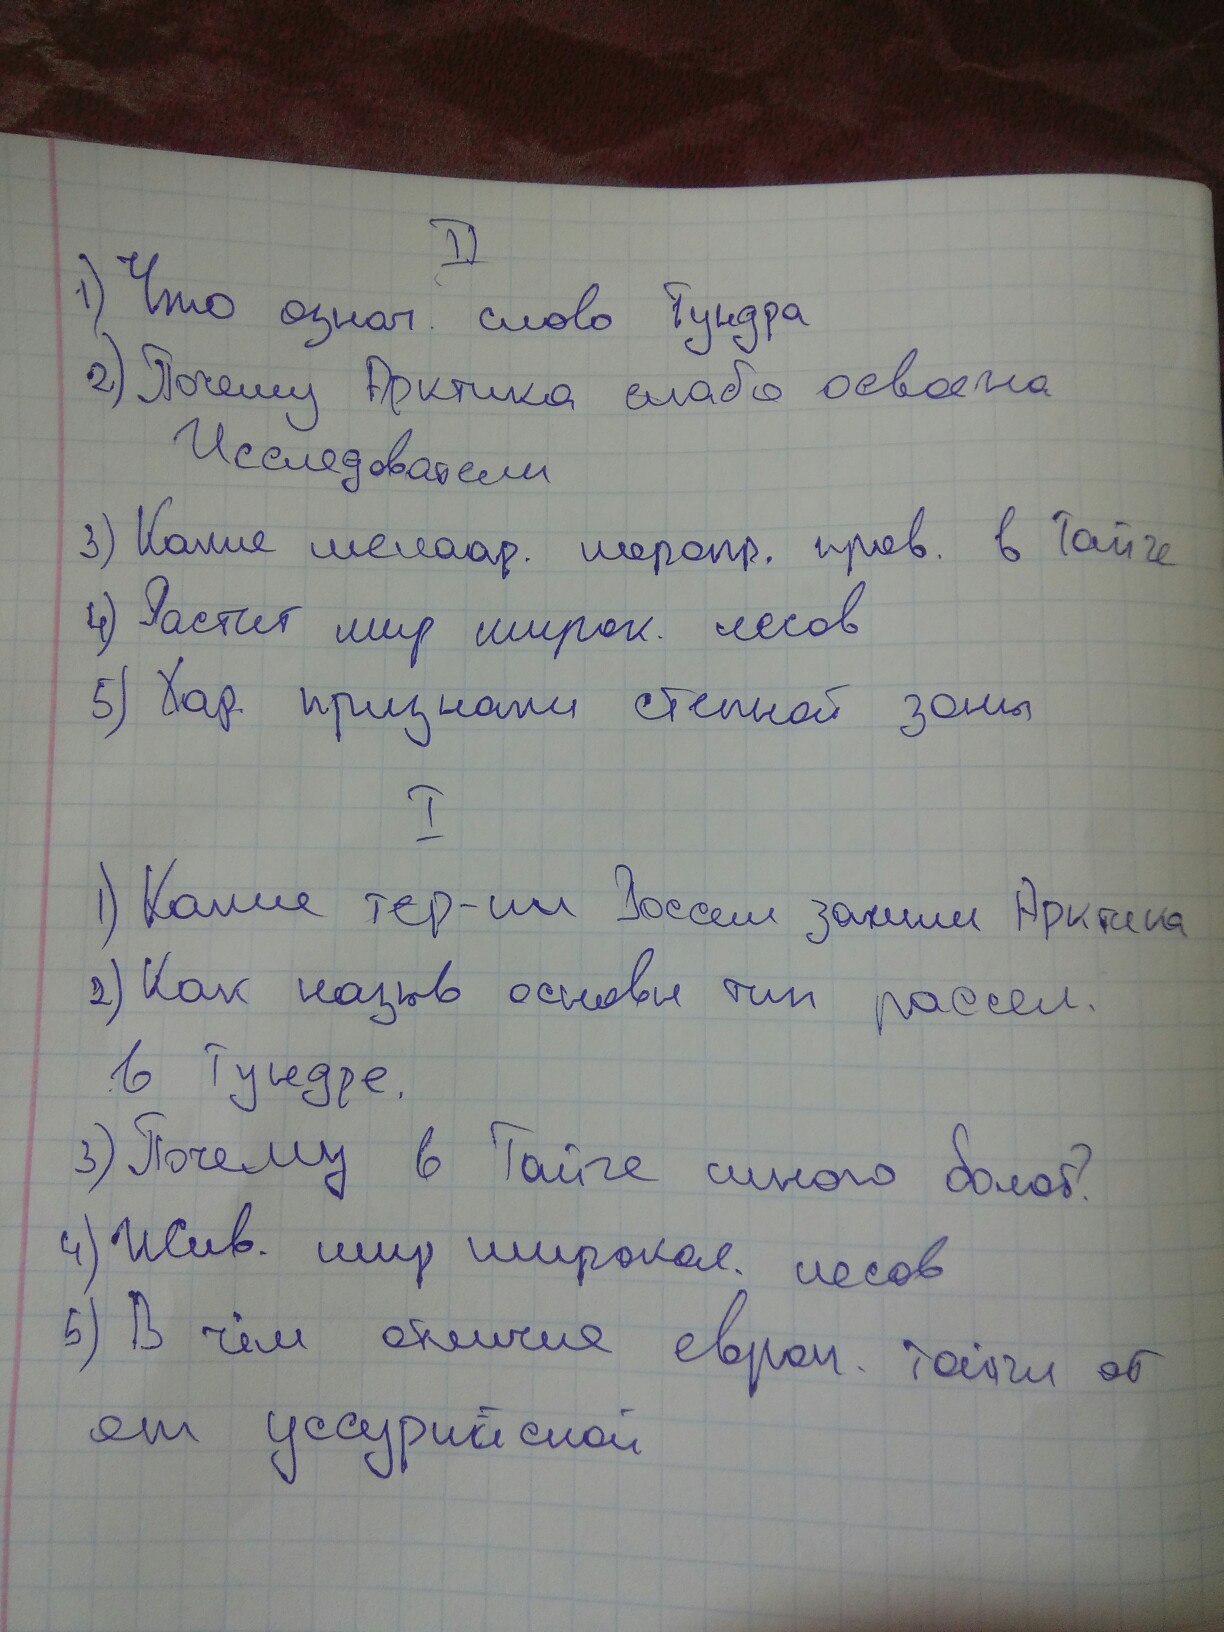 II
1) Что означ. слово Тундра
2) Почему Арктика слабо освоена
Исследователи
3) Какие мелиор. меропр. пров. в Тайге
4) Растит мир широк. лесов
5) Хар. признаки степной зоны
I
1) Какие тер-ии России заним Арктика
2) Как назыв основн тип рассел.
в Тундре.
3) Почему в Тайге много болот?
4) Жив. мир широкол. лесов
5) В чём отличие европ. тайги от
от уссурийской